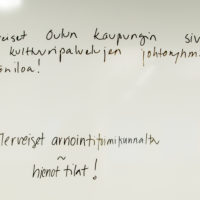 reiset Oulun kaupungin siv
kulttuuripalvelujen johtoryhm
oniloa!
Terveiset arviointitoimikunnalta
~
hienot tilat!